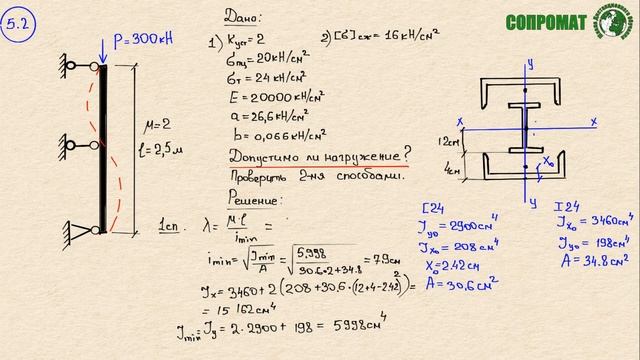 5.2
P=300кН
μ=2
l=2,5м
Дано:
1) Kуст=2
2) [σ]сж=16кН/см²
σпц=20кН/см²
σт=24кН/см²
E=20000кН/см²
a=26,6кН/см²
b=0,066кН/см²
Допустимо ли нагружение?
Проверить 2-мя способами.
Решение:
1сп. λ=μ·l/imin=
imin=√(Jmin/A)=√(5998/(30.6·2+34.8))=7.9см
Jx=3460+2(208+30,6·(12+4-2.42)²)=
=15 162см⁴
Jmin=Jy=2·2900+198=5998см⁴
СОПРОМАТ
y
x x
12см
4см
x₀
y
[24
Jy₀=2900см⁴
Jx₀=208см⁴
X₀=2.42см
A=30,6см²
I24
Jx₀=3460см⁴
Jy₀=198см⁴
A=34.8см²